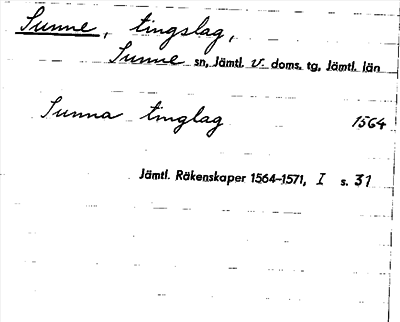 Sunne, tingslag,
Sunne sn, Jämtl. v. doms. tg, Jämtl. län
Sunna tinglag 1564
Jämtl. Räkenskaper 1564-1571, I s. 31